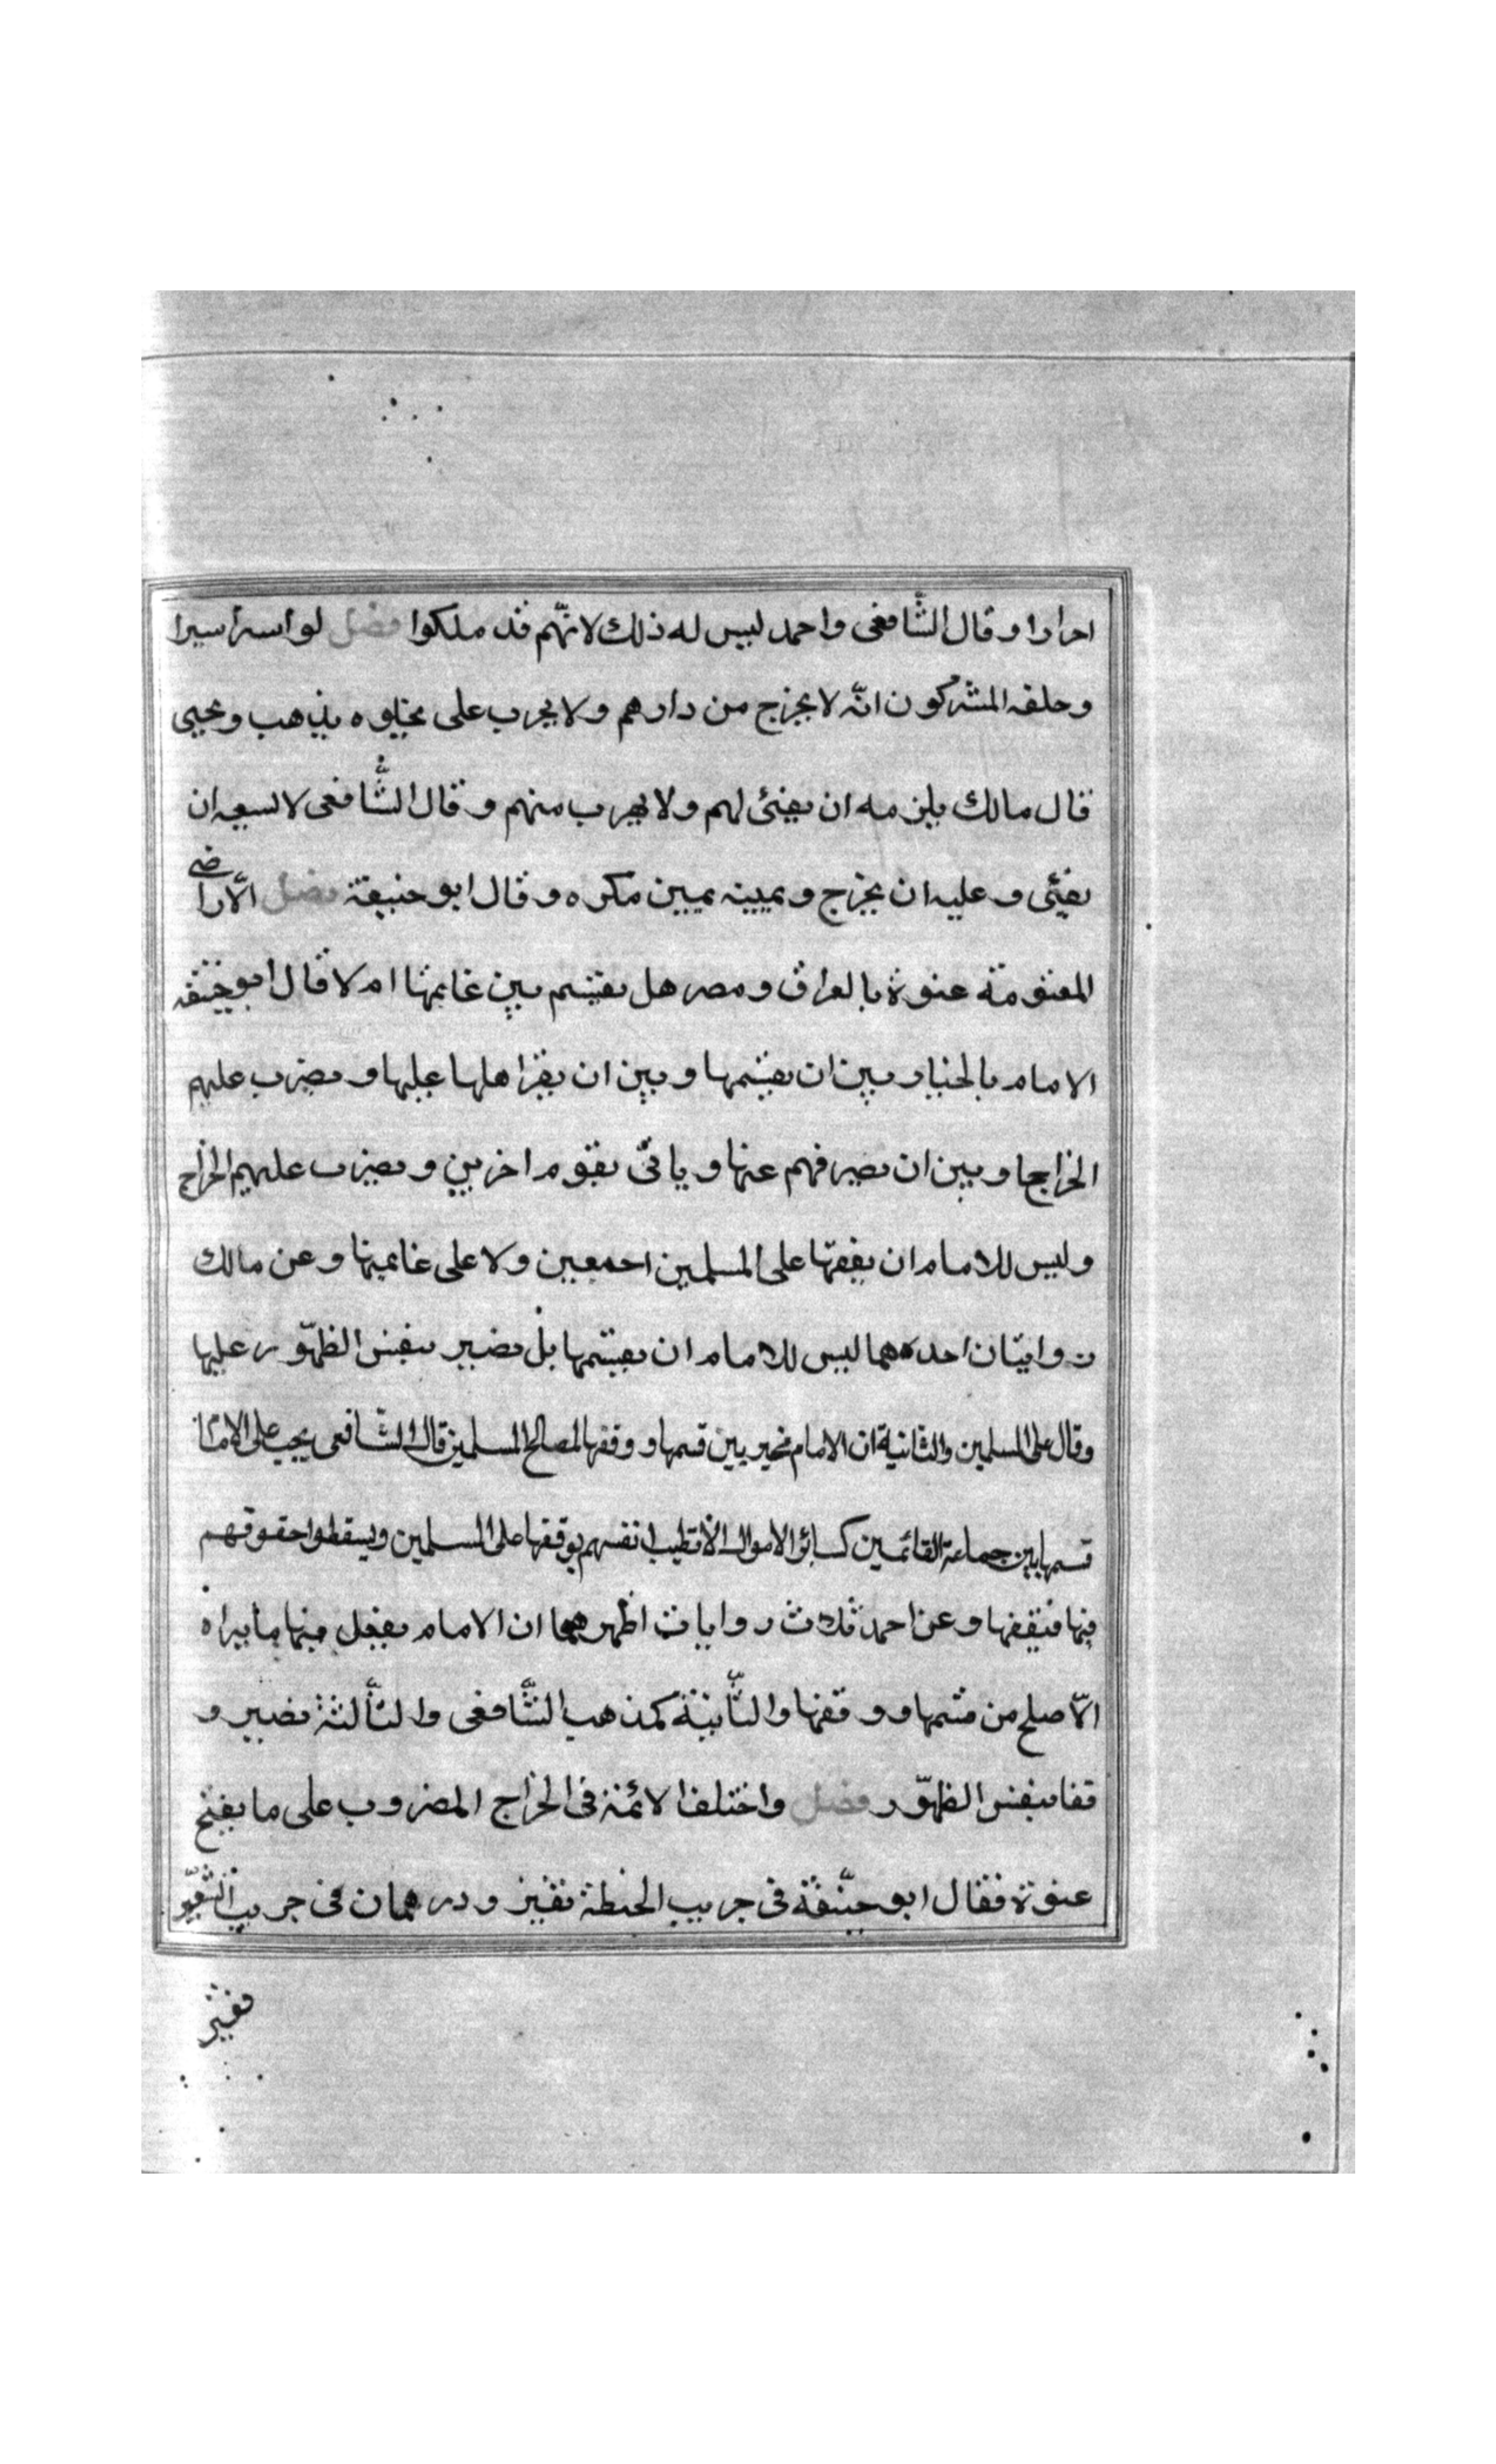 احرارا وقال الشّافعى واحمد ليس له ذلك لانّهم قد ملكوا فصل لو اسر اسيرا
وحلفه المشركون انّه لا يخرج من دارهم ولا يهرب على يخلوه يذهب ويحيى
قال مالك يلزمه ان يفئ لهم ولا يهرب منهم وقال الشّافعى لا يسعه ان
يفئى وعليه ان يخرج ويمينه يمين مكره وقال ابو حنيفة فصل الاّراضى
المغنومة عنوة بالعراق ومصر هل يقسم بين غانميها ام لا قال ابو حنيفه
الامام بالخيار بين ان يقسمها وبين ان يقر اهلها عليها ويضرب عليهم
الخراجا وبين ان يصرفهم عنها وياتى بقوم اخرين ويضرب عليهم الخراج
وليس للامام ان يقفها على المسلمين اجمعين ولا على غانميها وعن مالك
روايتان احدهما ليس للامام ان يقسمها بل يصير بنفس الظهّور عليها
وقال على المسلمين والثانية ان الامام مخير بين قسمها ووقفها لمصالح المسلمين قال الشّافعى يجب على الامام
قسمها بين جماعة القائمين كسائر الاموال الا تطيب انفسهم بوقفها على المسلمين ويسقطوا حقوقهم
منها فيقفها وعن احمد ثلاث روايات اظهرهما ان الامام يفعل منها ما يراه
الاّصلح من قسمها ووقفها والثّانية كمذهب الشّافعى والثالثة تصير و
قفا بنفس الظهّور فصل واختلف الائمة فى الخراج المضروب على ما يفتح
عنوة فقال ابو حنيفة فى جريب الحنطة قفيز ودرهمان فى جريب الشّعير
قفيز